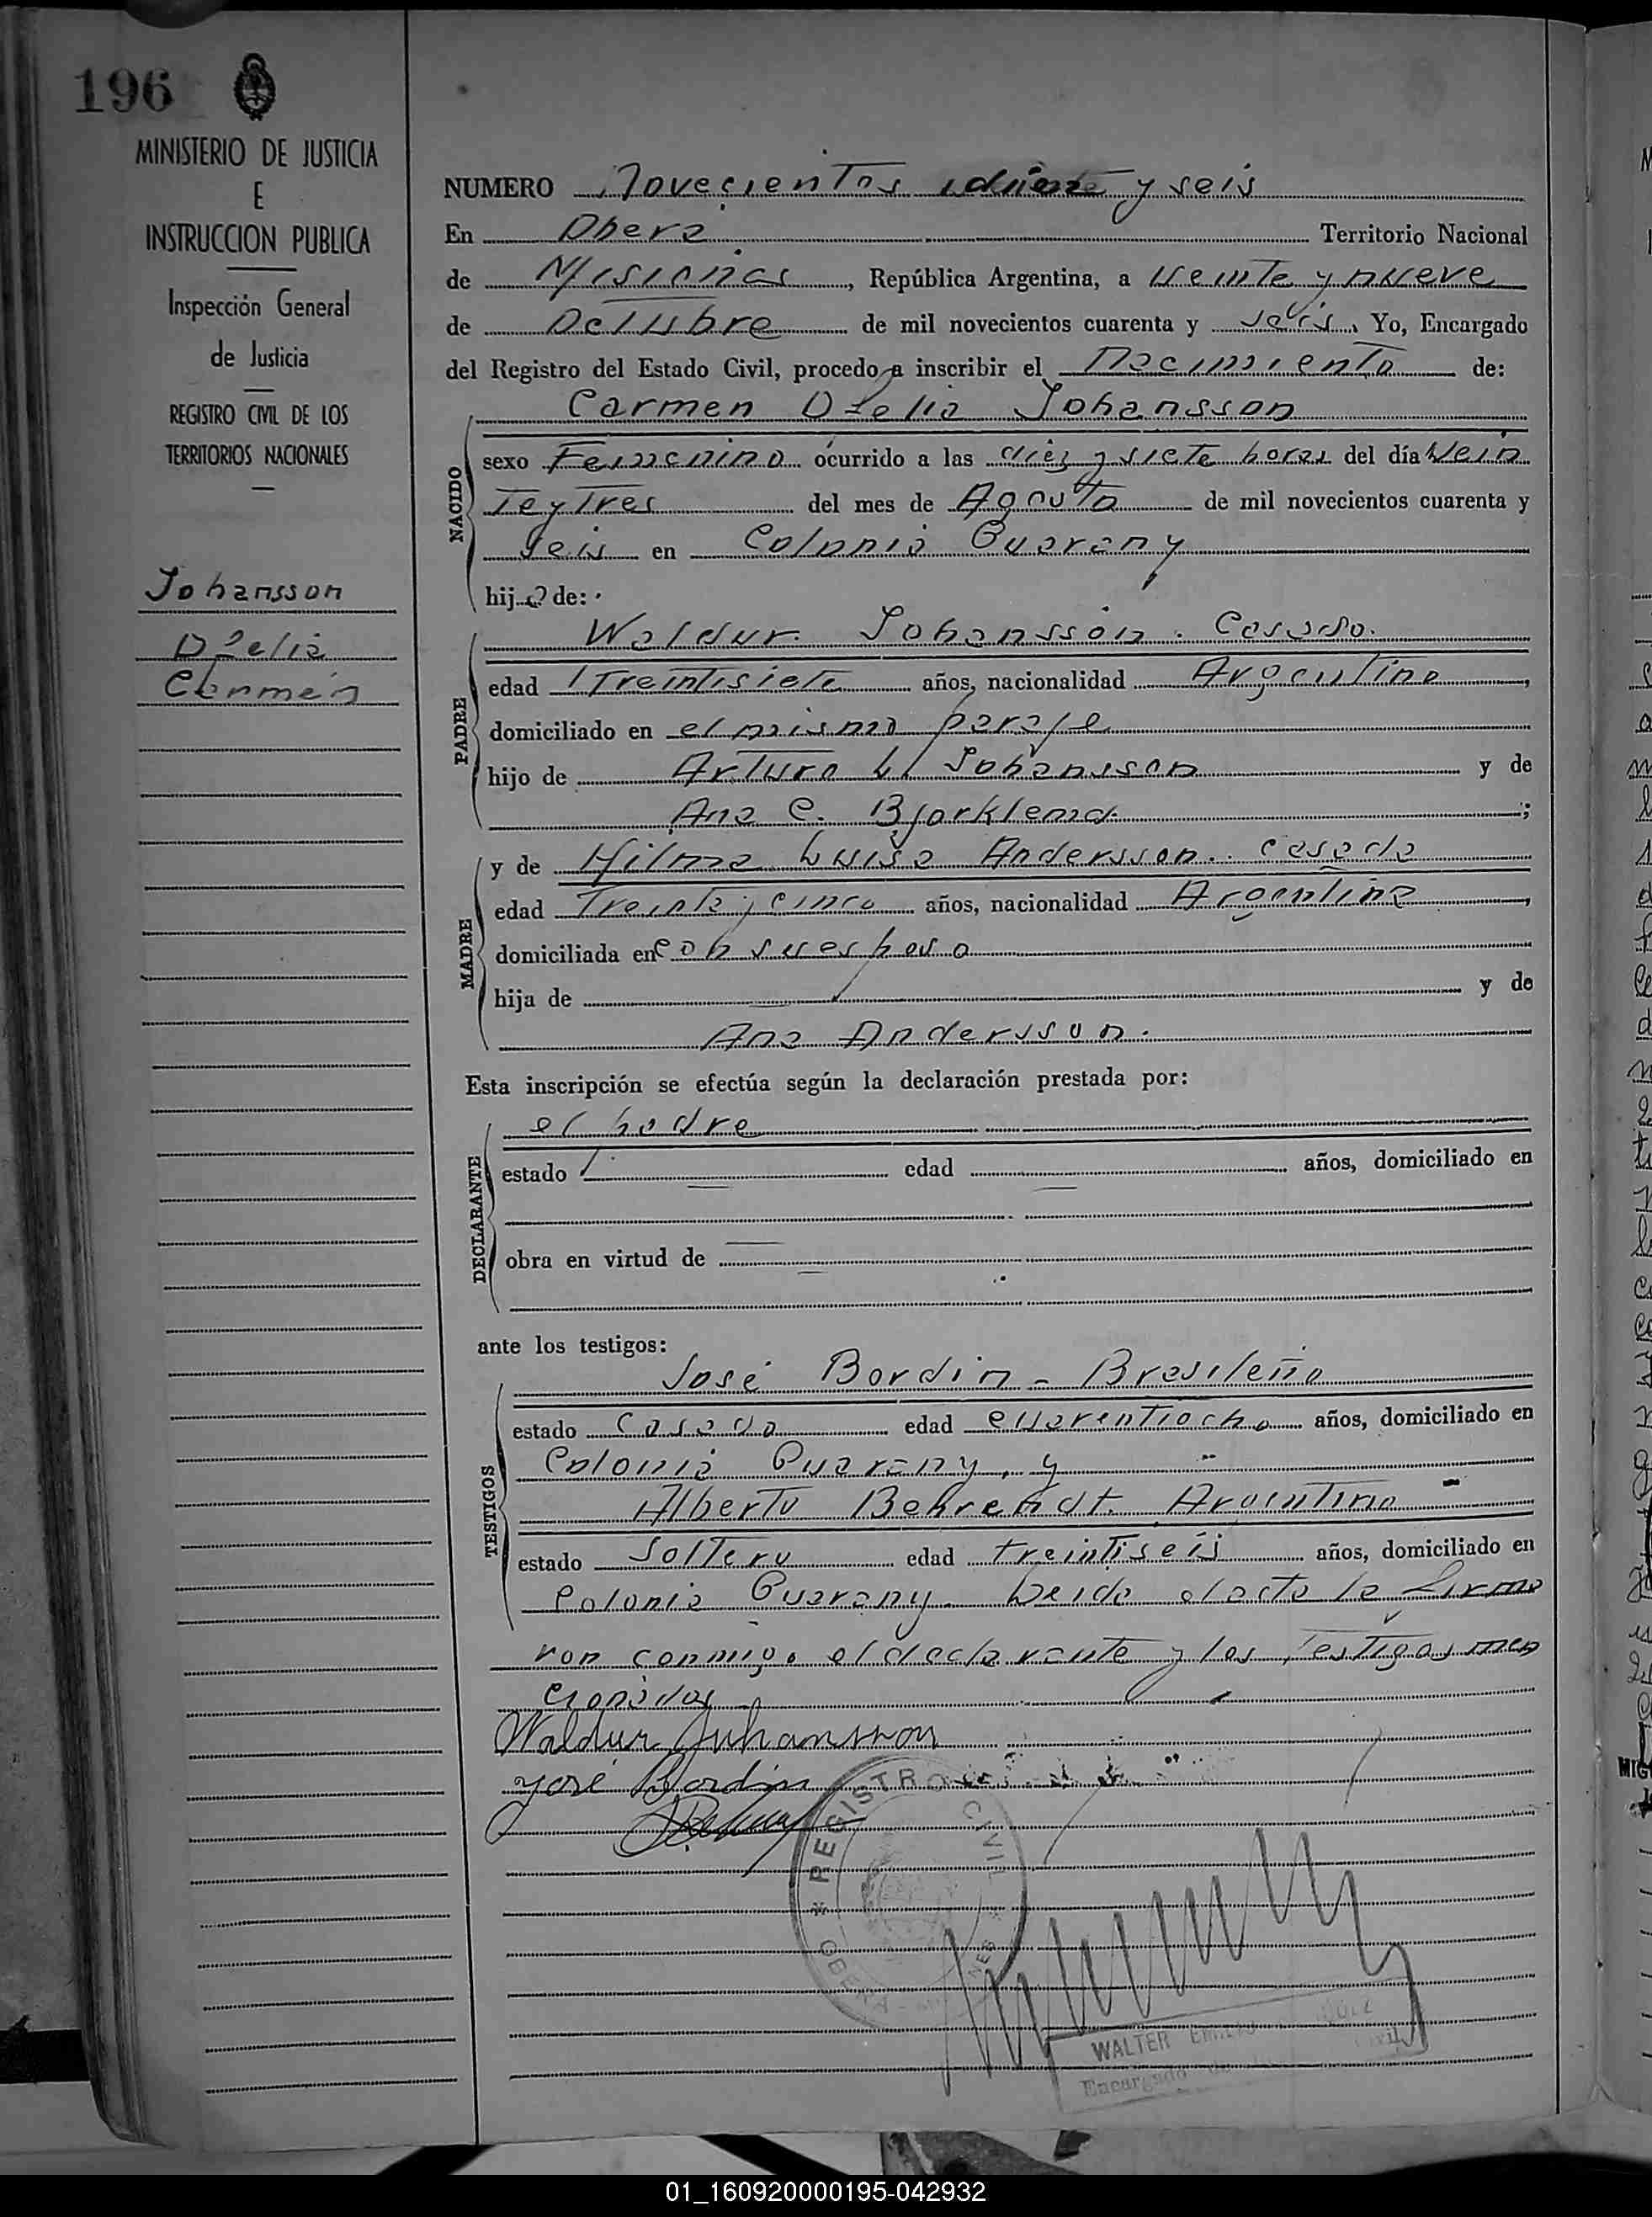 196
MINISTERIO DE JUSTICIA
E
INSTRUCCION PUBLICA
Inspección General
de Justicia
REGISTRO CIVIL DE LOS
TERRITORIOS NACIONALES
Johansson
Ofelia
Carmen
NUMERO Novecientos y seis
En Obera Territorio Nacional
de Misiones, República Argentina, a veinte y nueve
de Octubre de mil novecientos cuarenta y seis. Yo, Encargado
del Registro del Estado Civil, procedo a inscribir el Nacimiento de:
Carmen Ofelia Johansson
NACIDO
sexo Femenino ocurrido a las diez y siete horas del día Vein
te y tres del mes de Agosto de mil novecientos cuarenta y
seis en Colonia Guarany
hija de:
PADRE
Waldur Johansson. Casado.
edad Treintisiete años, nacionalidad Argentino,
domiciliado en el mismo paraje
hijo de Arturo L Johansson y de
Ana C. ;
MADRE
y de Hilma Luisa Andersson. casada
edad Treinta y cinco años, nacionalidad Argentina,
domiciliada en con su esposo
hija de y de
Ana Andersson.
Esta inscripción se efectúa según la declaración prestada por:
DECLARANTE
el padre
estado edad años, domiciliado en
obra en virtud de
ante los testigos:
TESTIGOS
José Bordin - Brasileño
estado Casado edad cuarentiocho años, domiciliado en
Colonia Guarany, y
Alberto Behrendt. Argentino
estado Soltero edad treintiseis años, domiciliado en
Colonia Guarany. Leida el acta la firma
ron conmigo el declarante y los testigos men
cionados
Waldur Johansson
José Bordin
REGISTRO CIVIL
OBERA
WALTER EMILIO
Encargado
01_160920000195-042932